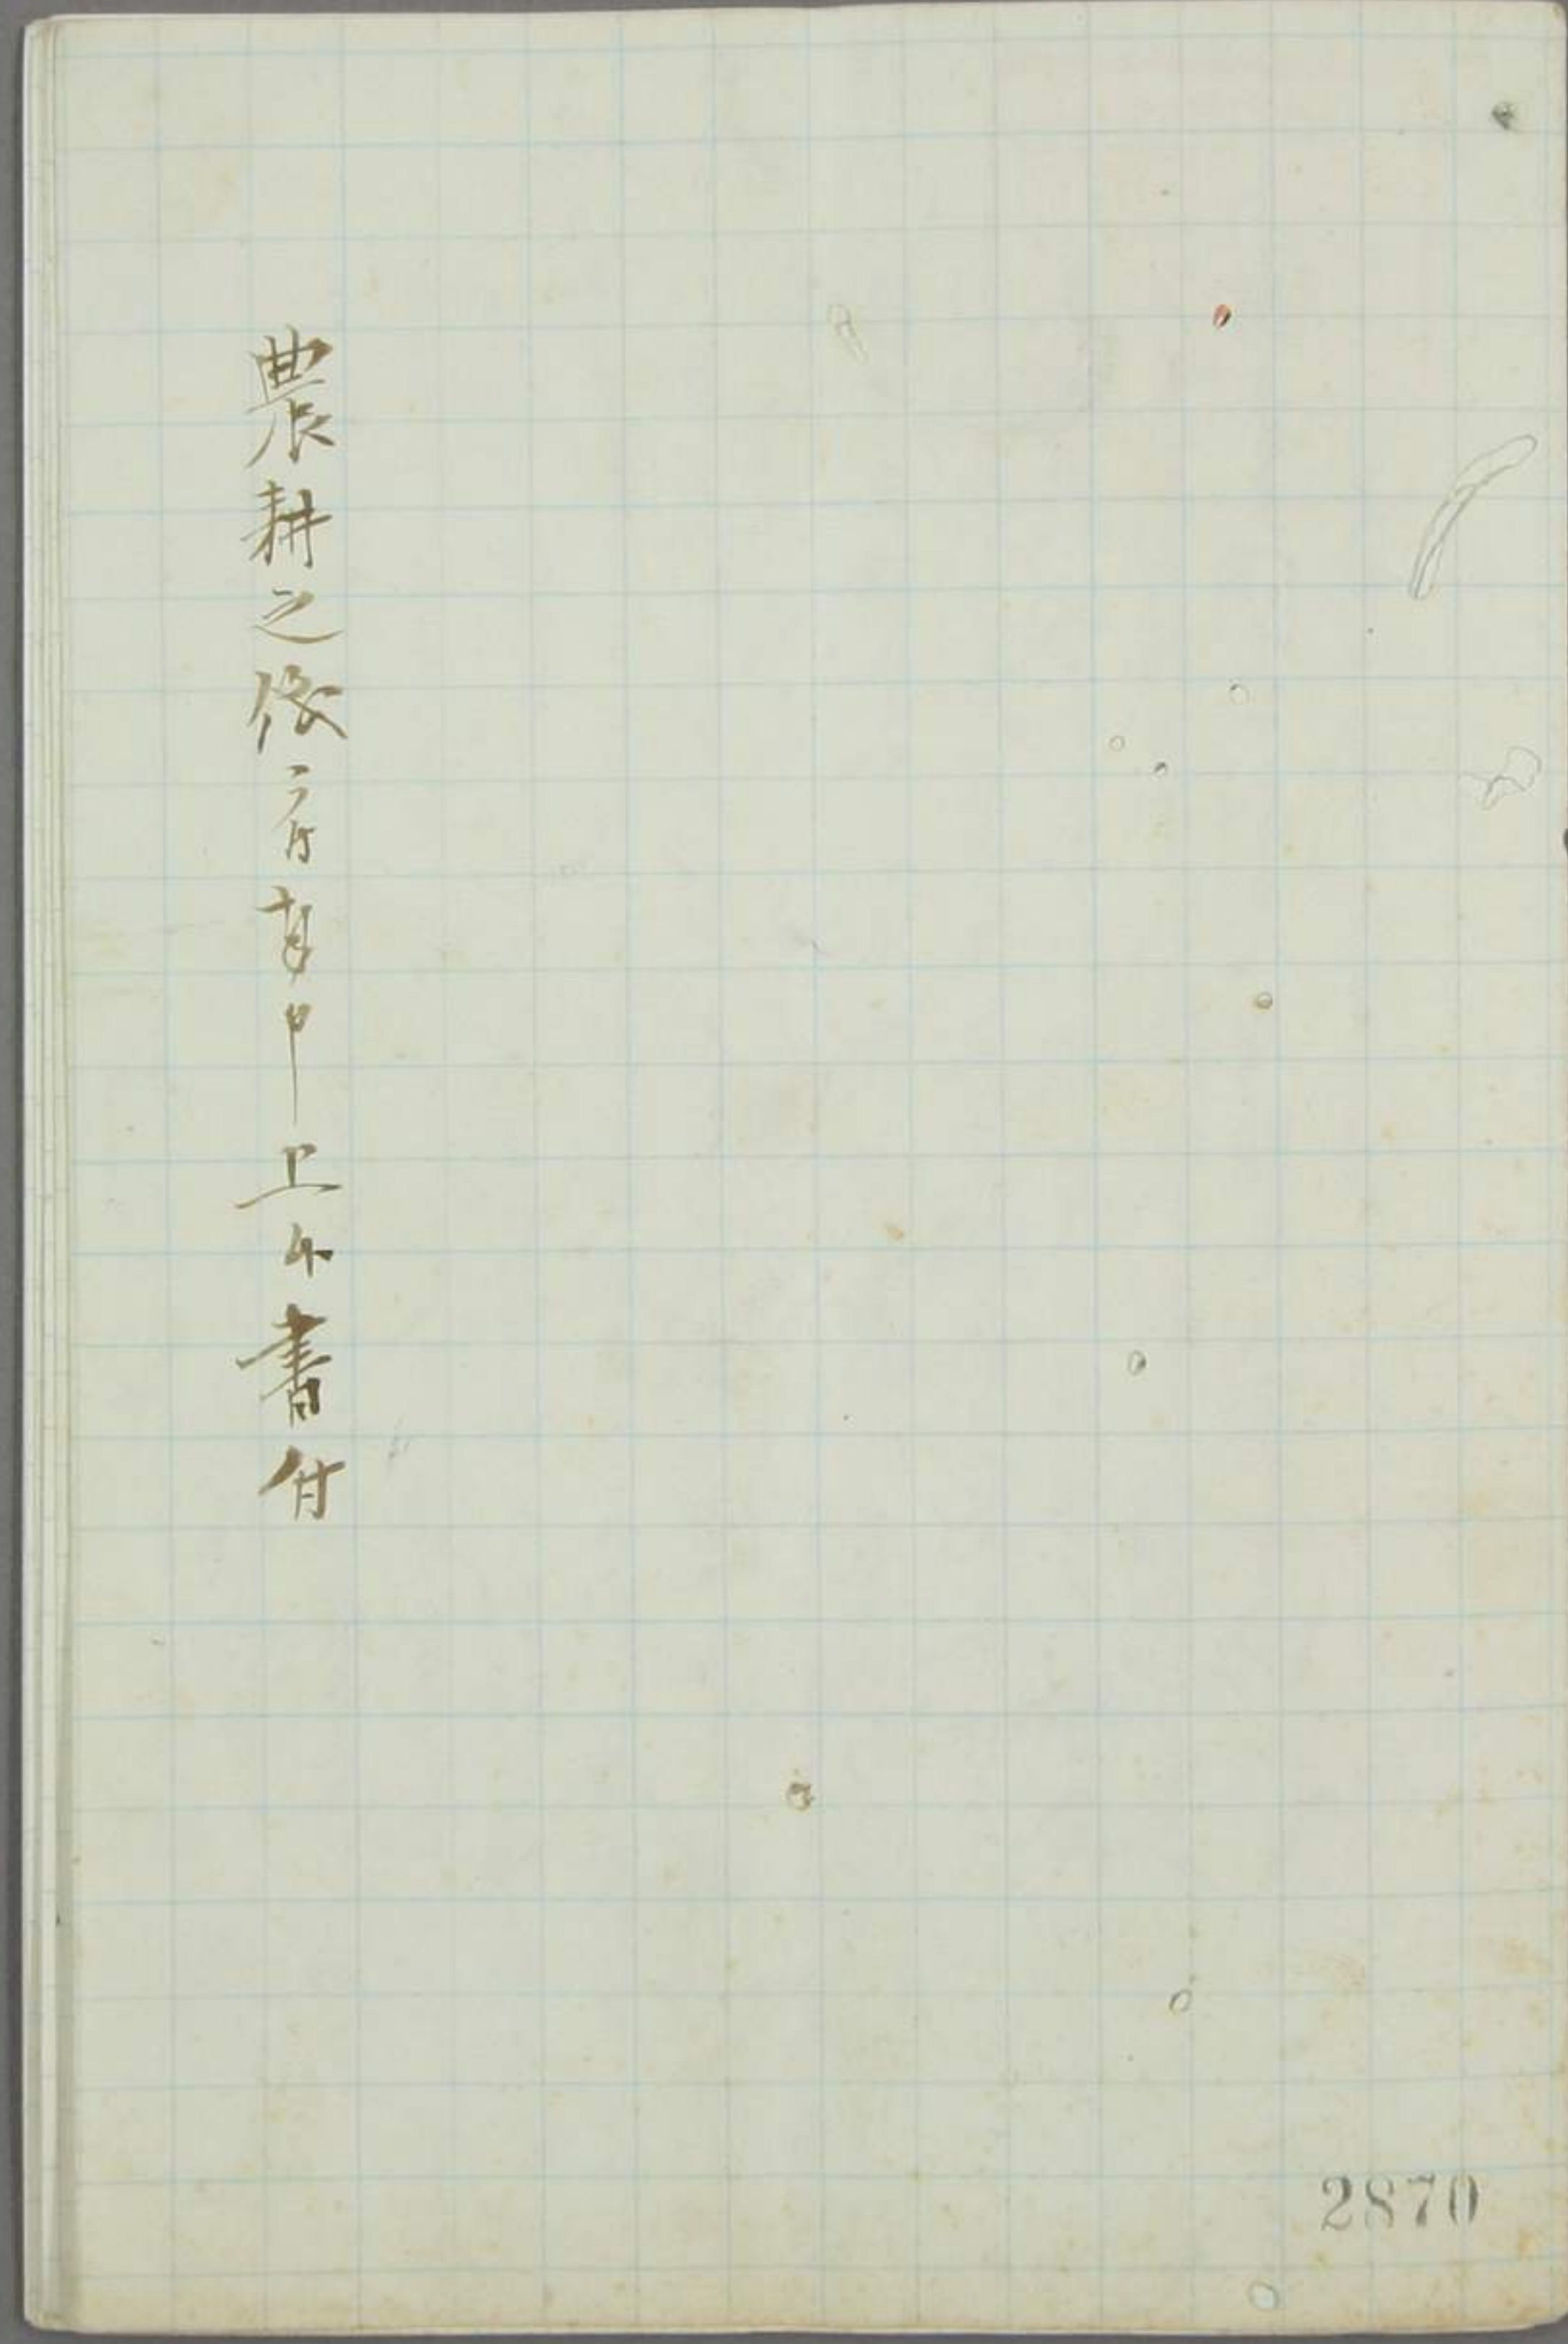 農耕之儀ニ付奉申上候書付
2870